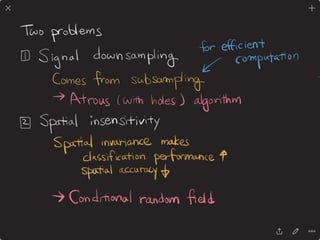 Two problems
1 Signal downsampling
for efficient
computation
Comes from subsampling
→ Atrous (with holes) algorithm
2 Spatial insensitivity
Spatial invariance makes
classification performance ↑
spatial accuracy ↓
→ Conditional random field